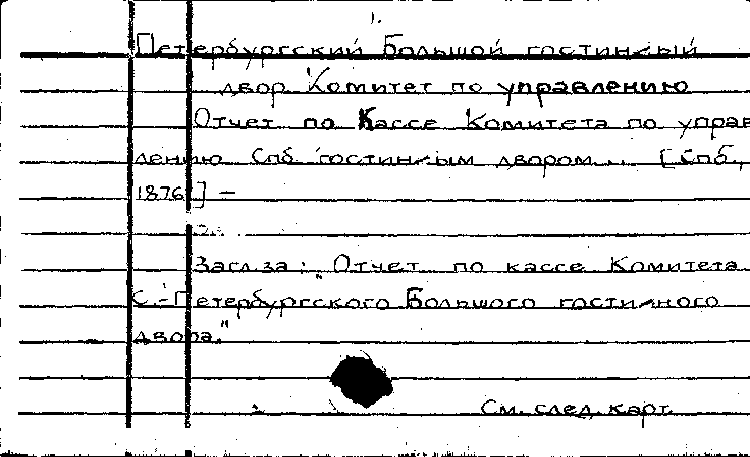 1.
Петербургский Большой гостиный
двор. Комитет по управлению
Отчет по кассе Комитета по управ
лению Спб. гостиным двором... [Спб.,
1876] —
Загл. за: "Отчет по кассе Комитета
С.-Петербургского Большого гостиного
двора."
См. след. карт.